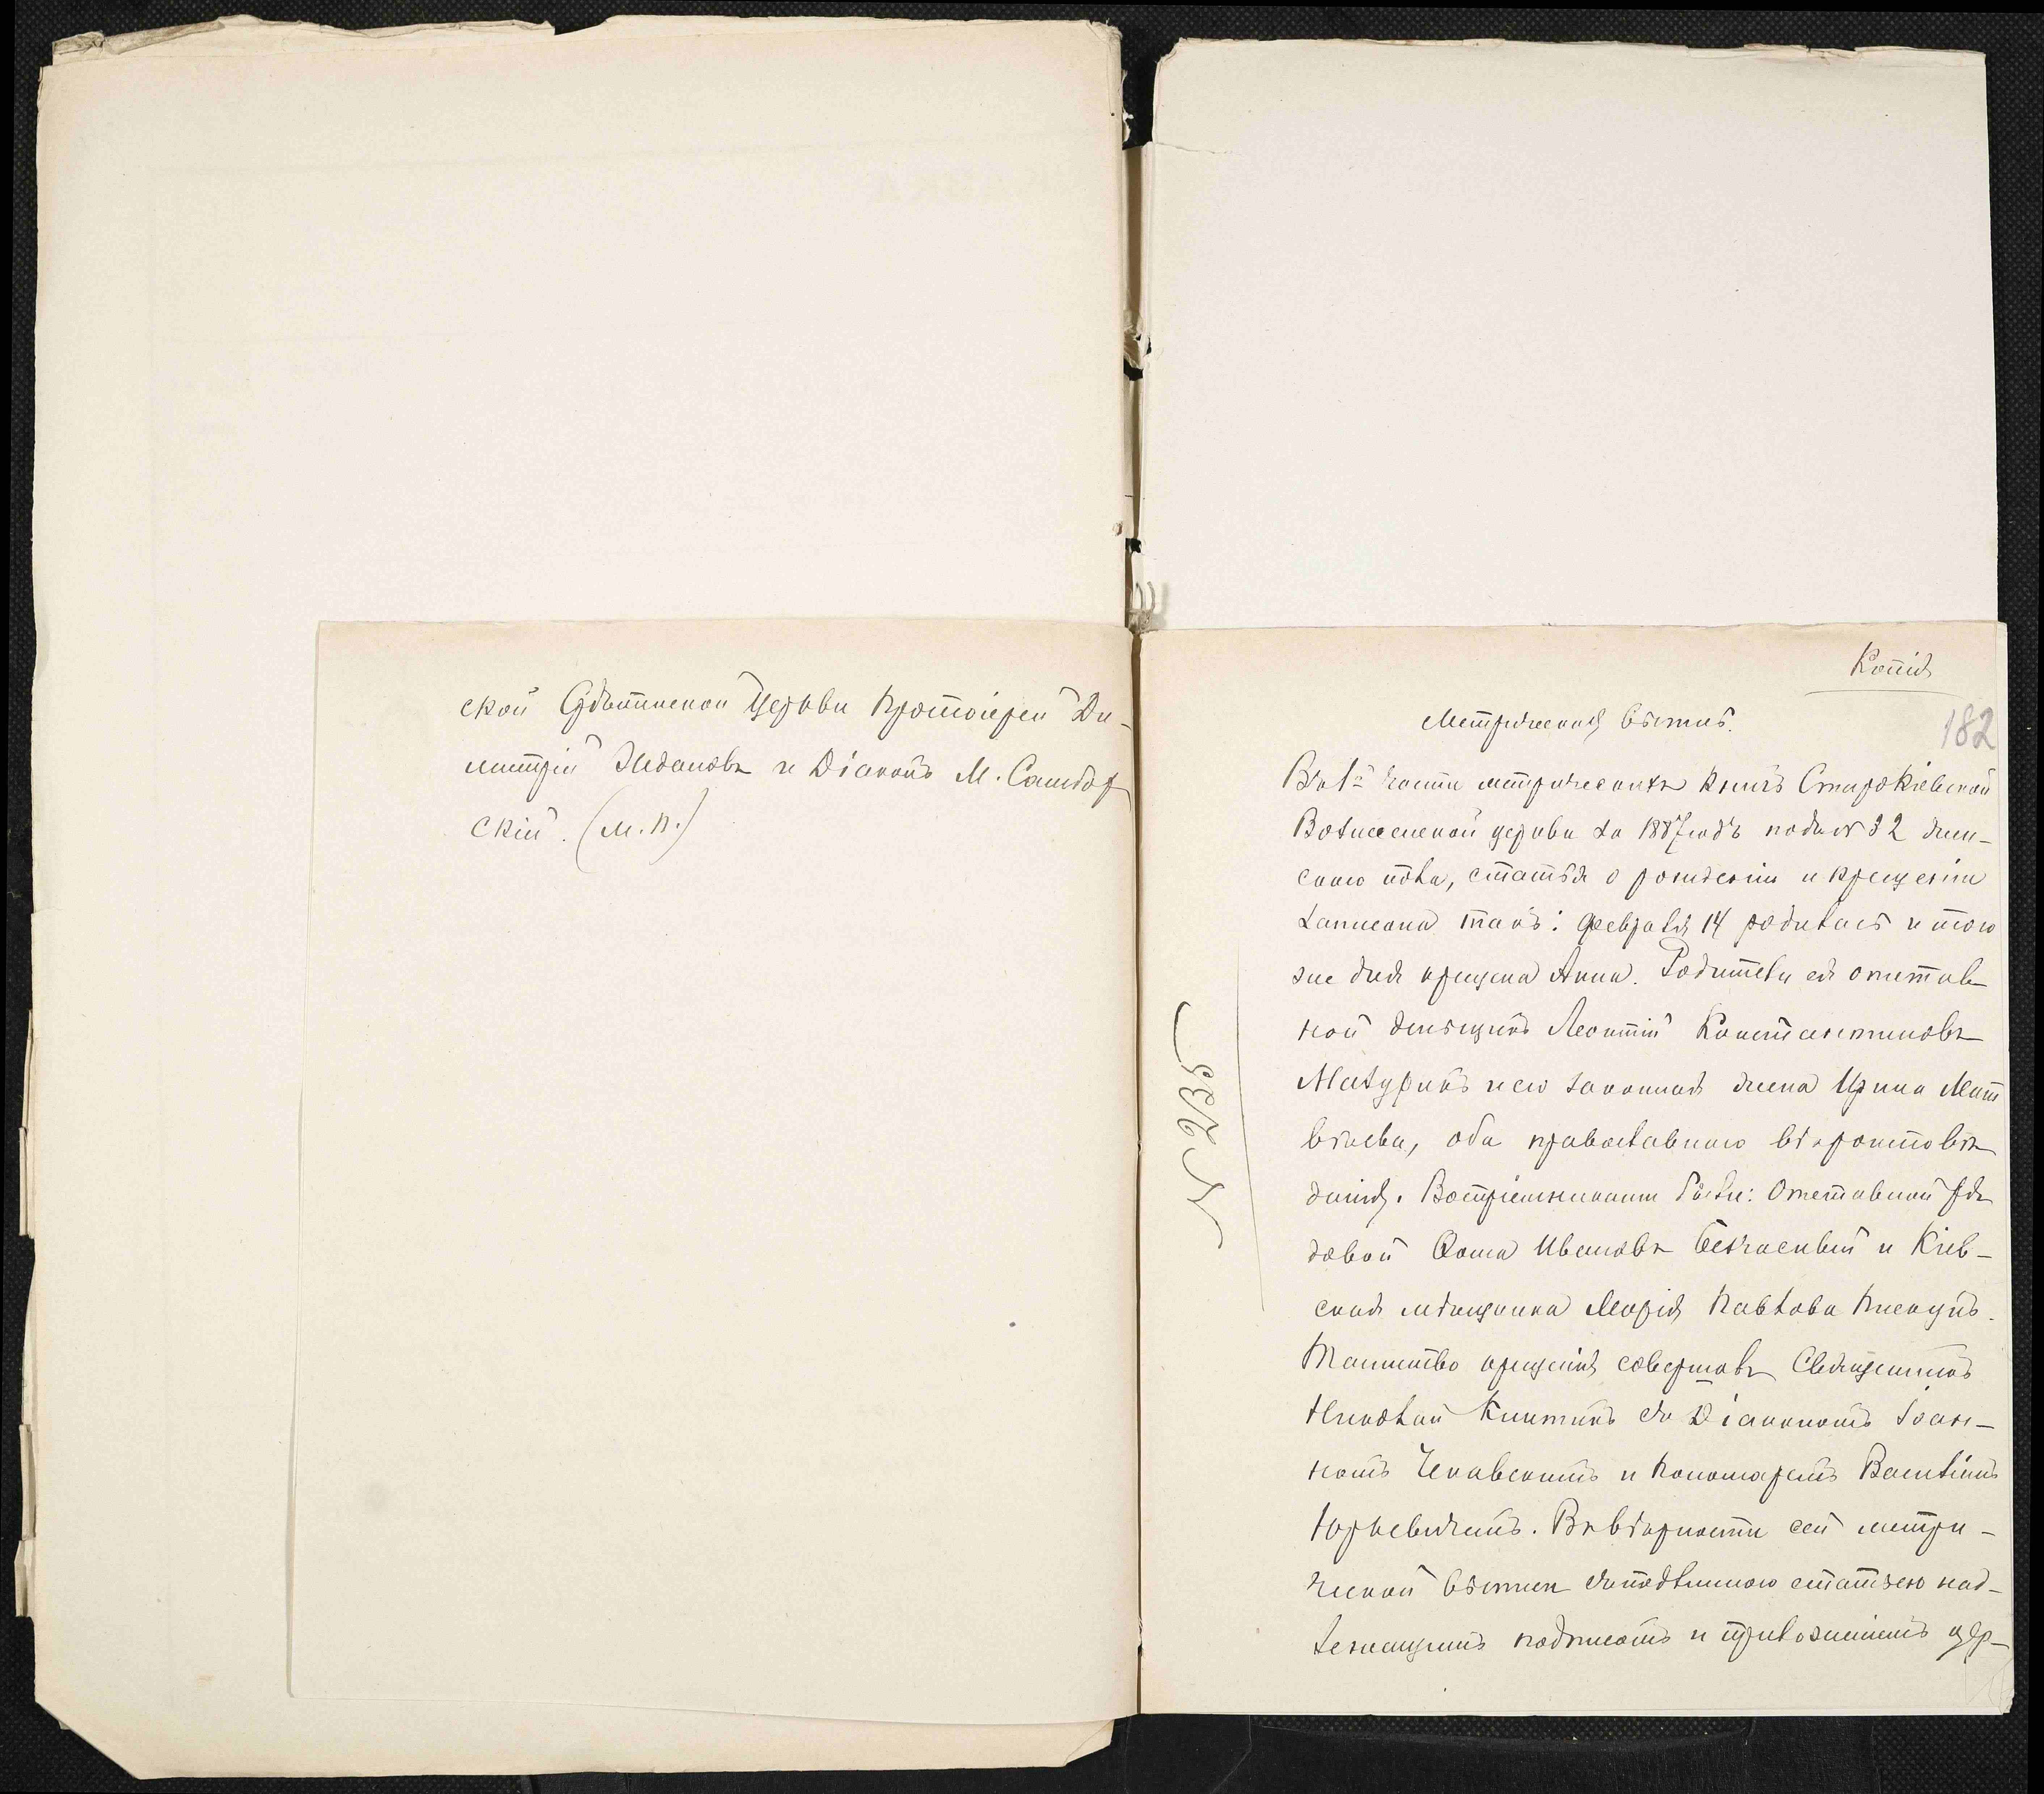 ской Срѣтенской Церкви Протоіерей Ди-
митрій Ждановъ и Діаконъ М. Самбор
скій. (М. П.)
Копія
182
Метрическая выпись.
Въ 1й части метрическихъ книгъ Старокіевской
Вознесенской церкви за 1887 годъ подъ № 32 жен-
скаго пола, статья о рожденіи и крещеніи
записана такъ: Февраля 14 родилась и того
же дня крещена Анна. Родители ея отстав-
ной деньщикъ Леонтій Константиновъ
Мазурикъ и его законная жена Ирина Мат
вѣева, оба православнаго вѣроисповѣ
данія. Воспріемниками были: Отставной ря
довой Ѳома Ивановъ Безчасный и Кіев-
ская мѣщанка Марія Павлова Пискунъ.
Таинство крещенія совершалъ Священникъ
Николай съ Діакономъ Іоан-
номъ и Пономаремъ Василіемъ
Юркевичемъ. Въ вѣрности сей метри-
ческой выписи съ подлинною статьею над-
лежащимъ подписомъ и приложеніемъ цер-
№ 235